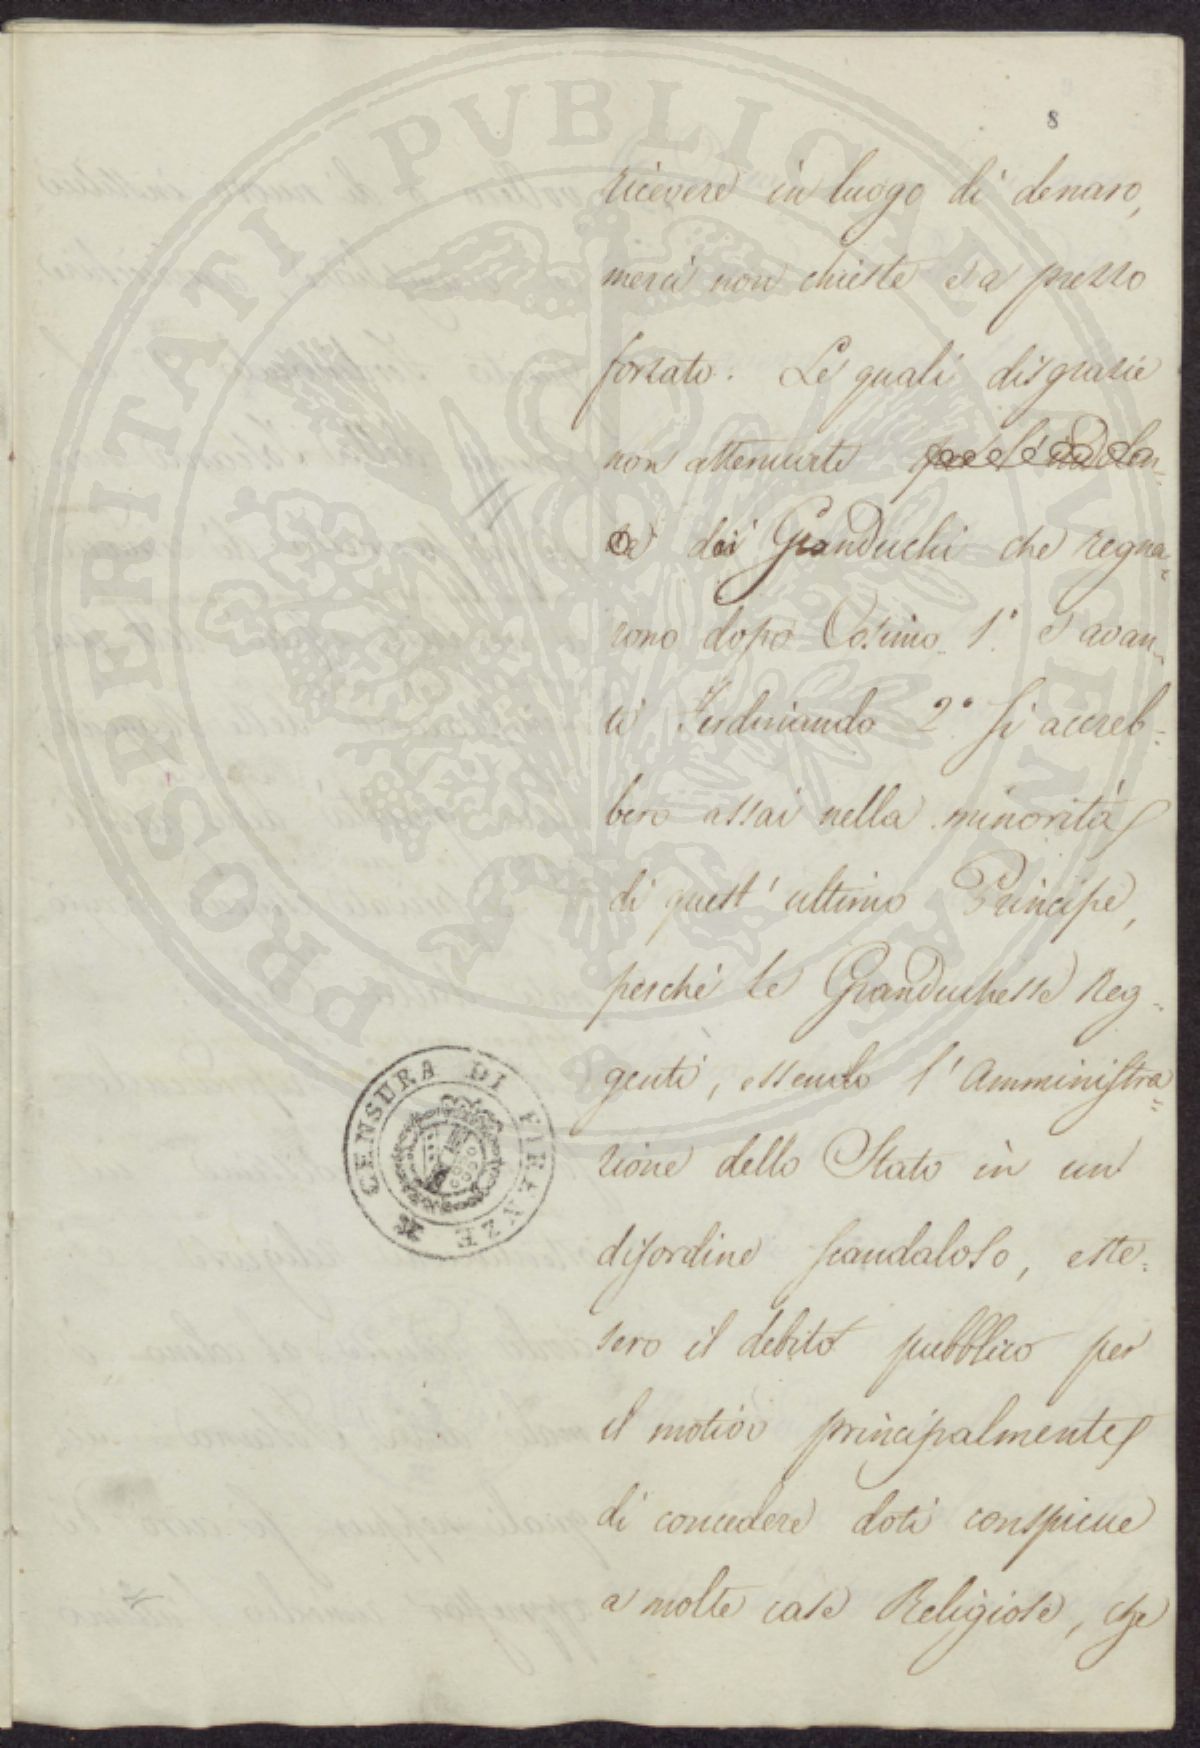 8
ricevere in luogo di denaro,
merci non chieste e a prezzo
forzato. Le quali disgrazie
non attenuate
dei Granduchi che regna=
rono dopo Cosimo 1.° e avan=
ti Ferdinando 2.° si accreb=
bero assai nella minorità
di quest' ultimo Principe,
perchè le Granduchesse Reg=
genti, essendo l'Amministra=
zione dello Stato in un
disordine scandaloso, este=
sero il debito pubblico per
il motivo principalmente
di concedere doti conspicue
a molte case Religiose, che
CENSURA DI FIRENZE
PROSPERITATI PVBLICAE AVGENDAE